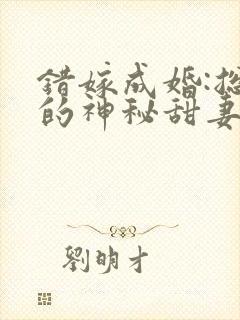 错嫁成婚:
的神秘甜妻
劉明才